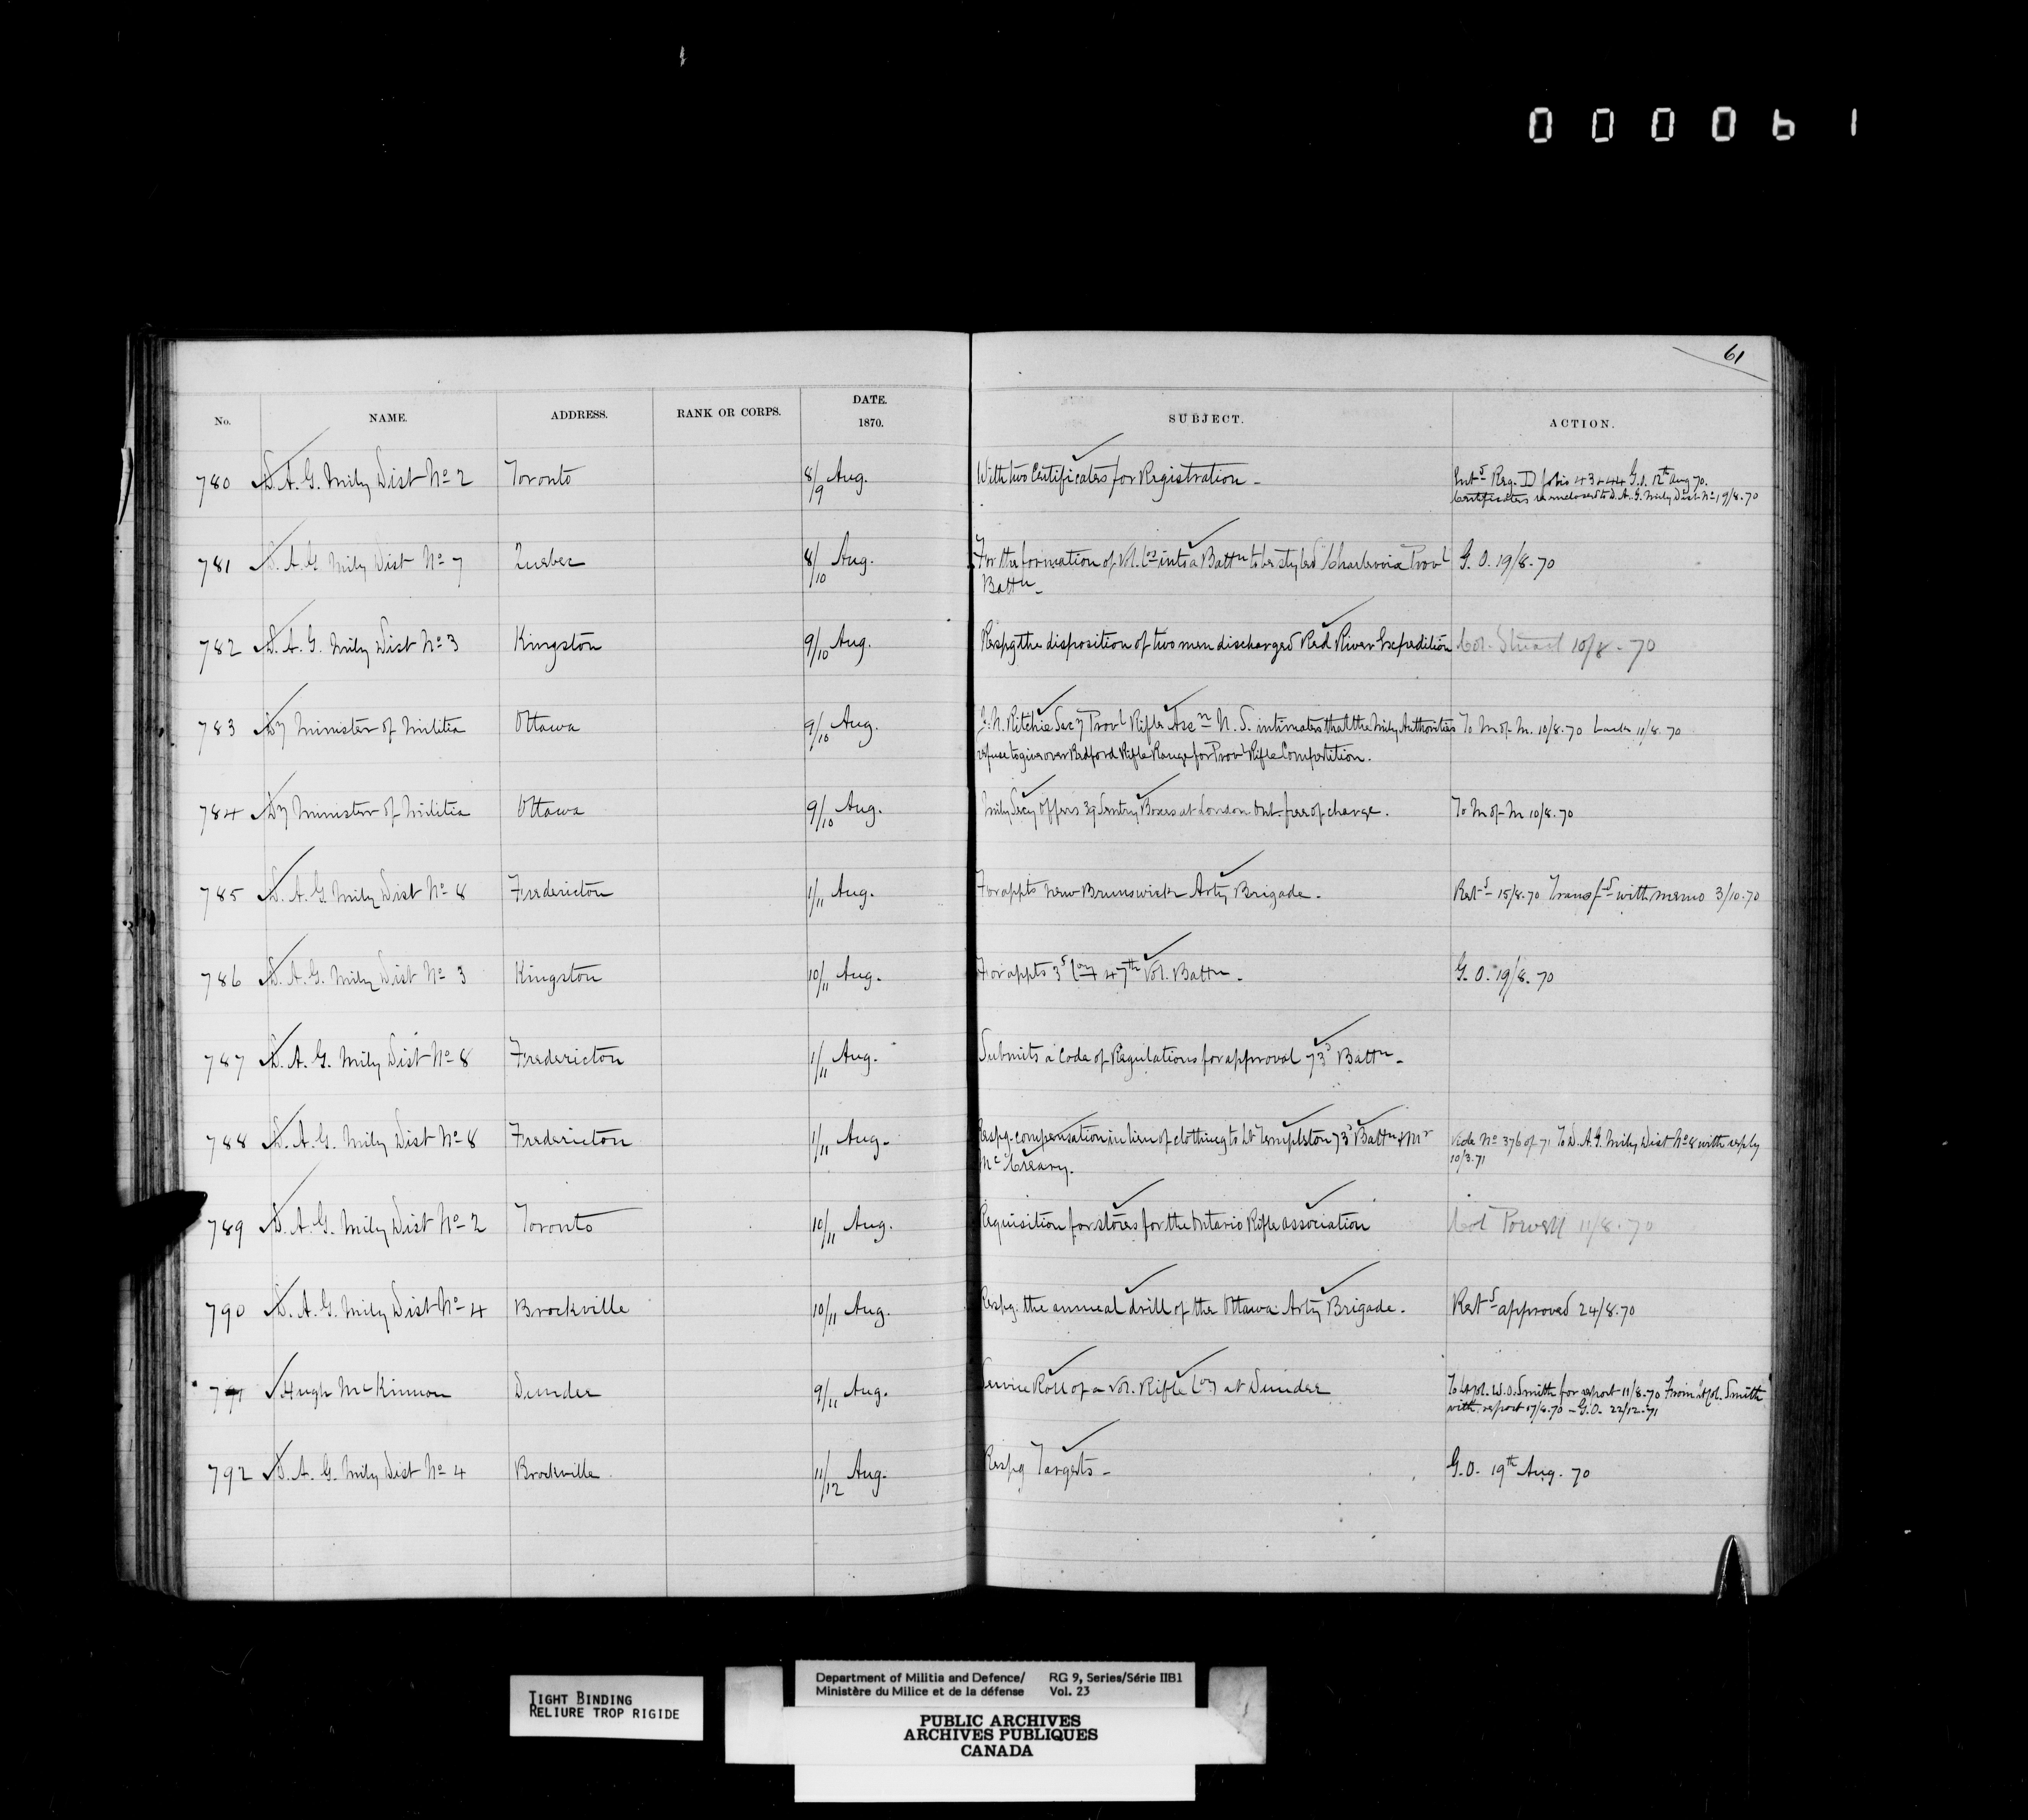 0 0 0 0 6 1
61
No. NAME. ADDRESS. RANK OR CORPS. DATE. 1870. SUBJECT. ACTION.
780 D. A. G. Mily Dist No 2 Toronto 8/9 Aug. With two Certificates for Registration - Entd Reg. D folio 43 & 44 G.O. 12th Aug 70.
Certificates reinclosed to D. A. G. Mily Dist No 1 9/8.70
781 D. A. G Mily Dist No 7 Quebec 8/10 Aug. For the formation of Vol. Cos into a Battn to be styled Charlevoix Provl G. O. 19/8.70
Battn -
782 D. A. G. Mily Dist No 3 Kingston 9/10 Aug. Respg the disposition of two men discharged Red River Expedition Col. Stuart 10/8.70
783 Dy Minister of Militia Ottawa 9/10 Aug. J. N. Ritchie Secy Provl Rifle Assn N. S. intimates that the Mily Authorities To M of M. 10/8.70 11/8.70
refuse to give over Bedford Rifle Range for Provl Rifle Competition.
784 Dy Minister of Militia Ottawa 9/10 Aug. Mily Secy offers 39 Sentry Boxes at London Ont. free of charge. To M of M 10/8.70
785 D. A. G Mily Dist No 8 Fredericton 1/11 Aug. For appts New Brunswick Arty Brigade. Retd 15/8.70 Transfd with memo 3/10.70
786 D. A. G. Mily Dist No 3 Kingston 10/11 Aug. For appts 3d Coy 47th Vol. Battn - G. O. 19/8.70
787 D. A. G. Mily Dist No 8 Fredericton 1/11 Aug. Submits a Code of Regulations for approval 73d Battn -
788 D. A. G. Mily Dist No 8 Fredericton 1/11 Aug. Respg compensation in lieu of clothing to Lt Templeton 73d Battn & Mr Vide No 376 of 71 To D. A. G. Mily Dist No 8 with reply
McCreary. 10/3.71
789 D. A. G. Mily Dist No 2 Toronto 10/11 Aug. Requisition for stores for the Ontario Rifle association Col Powell 11/8.70
790 D. A. G. Mily Dist No 4 Brockville 10/11 Aug. Respg. the annual drill of the Ottawa Arty Brigade. Retd approved 24/8.70
791 Hugh McKinnon Dundee 9/11 Aug. Service Roll of a Vol. Rifle Coy at Dundee To Lt Col. W. O. Smith for report 11/8.70 From Lt Col. Smith
with report 17/8.70 - G.O. 22/12.71
792 D. A. G. Mily Dist No 4 Brockville 11/12 Aug. Respg Targets - G. O. 19th Aug. 70
TIGHT BINDING
RELIURE TROP RIGIDE
Department of Militia and Defence/ RG 9, Series/Série IIB1
Ministère du Milice et de la défense Vol. 23
PUBLIC ARCHIVES
ARCHIVES PUBLIQUES
CANADA